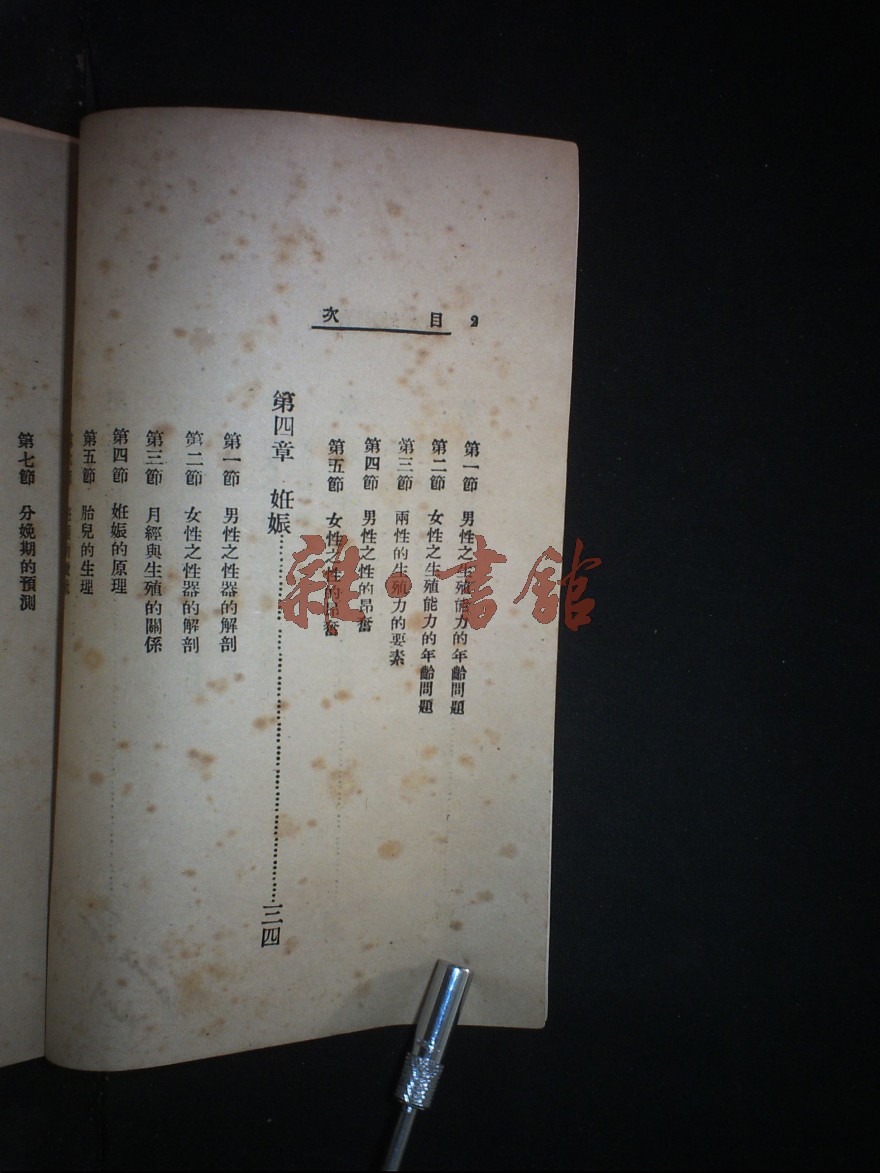 2 目次
第一節 男性之生殖能力的年齡問題
第二節 女性之生殖能力的年齡問題
第三節 兩性的生殖力的要素
第四節 男性之性的昂奮
第五節 女性之性的昂奮
第四章 姙娠 三四
第一節 男性之性器的解剖
第二節 女性之性器的解剖
第三節 月經與生殖的關係
第四節 姙娠的原理
第五節 胎兒的生理
第七節 分娩期的預測
雜·書館